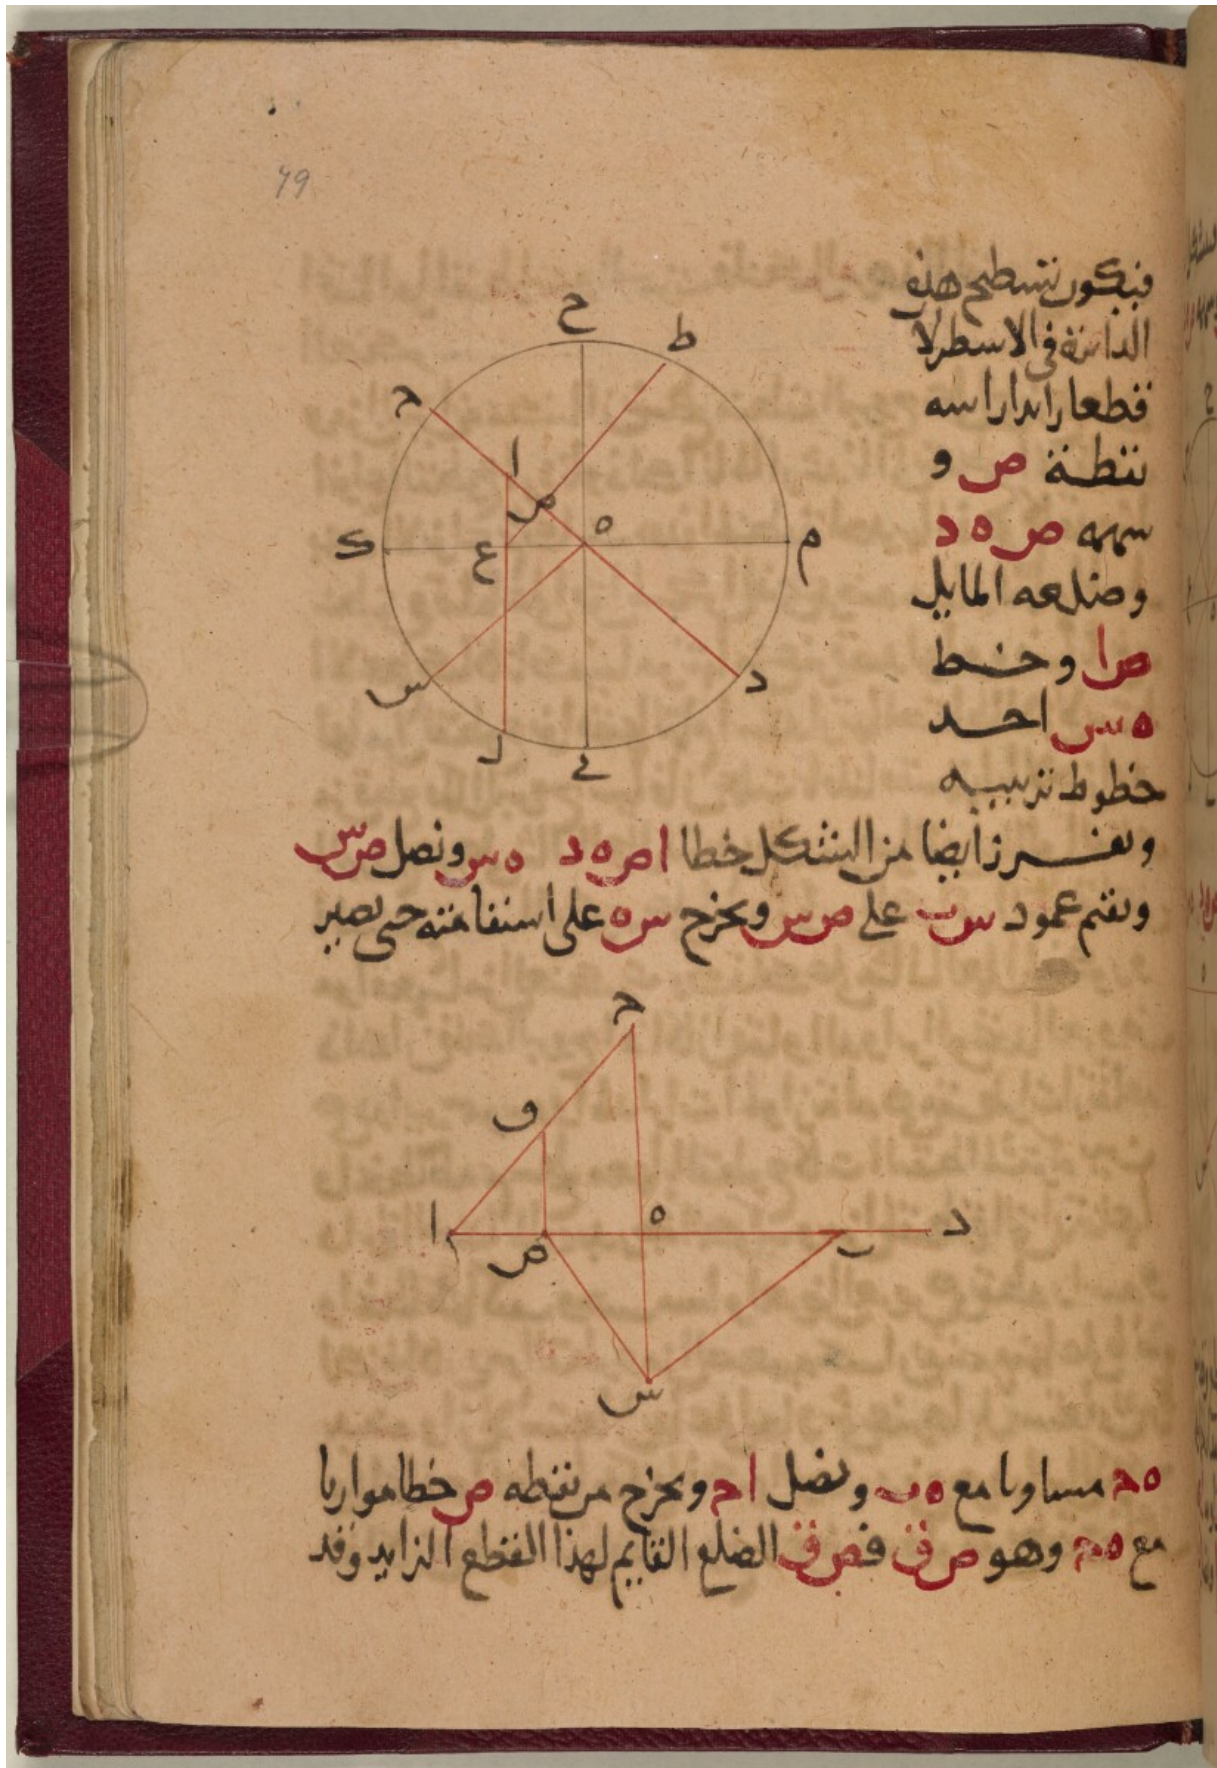 79
فيكون تسطيح هذه
الدائرة في الاسطرلا
قطعا زايدا راسه
نقطة ص و
سهمه ص ه د
وضلعه المايل
ص ا وخط
ه س احد
خطوط ترتيبه
ونفرز ايضا من الشكل خطا ا ص ه د ه س ونصل ص س
ونقيم عمود س ب على ص س ونخرج س ه على استقامته حتى يصير
ح
ط
ح
ا
ص
ه
ك
ع
م
س
د
ل
ح
ف
ا
ص
ه
ب
د
س
ه ح مساويا مع ه ب ونصل ا ح ونخرج من نقطه ص خطا موازيا
مع ه ح وهو ص ف فص ف الضلع القايم لهذا القطع الزايد وقد